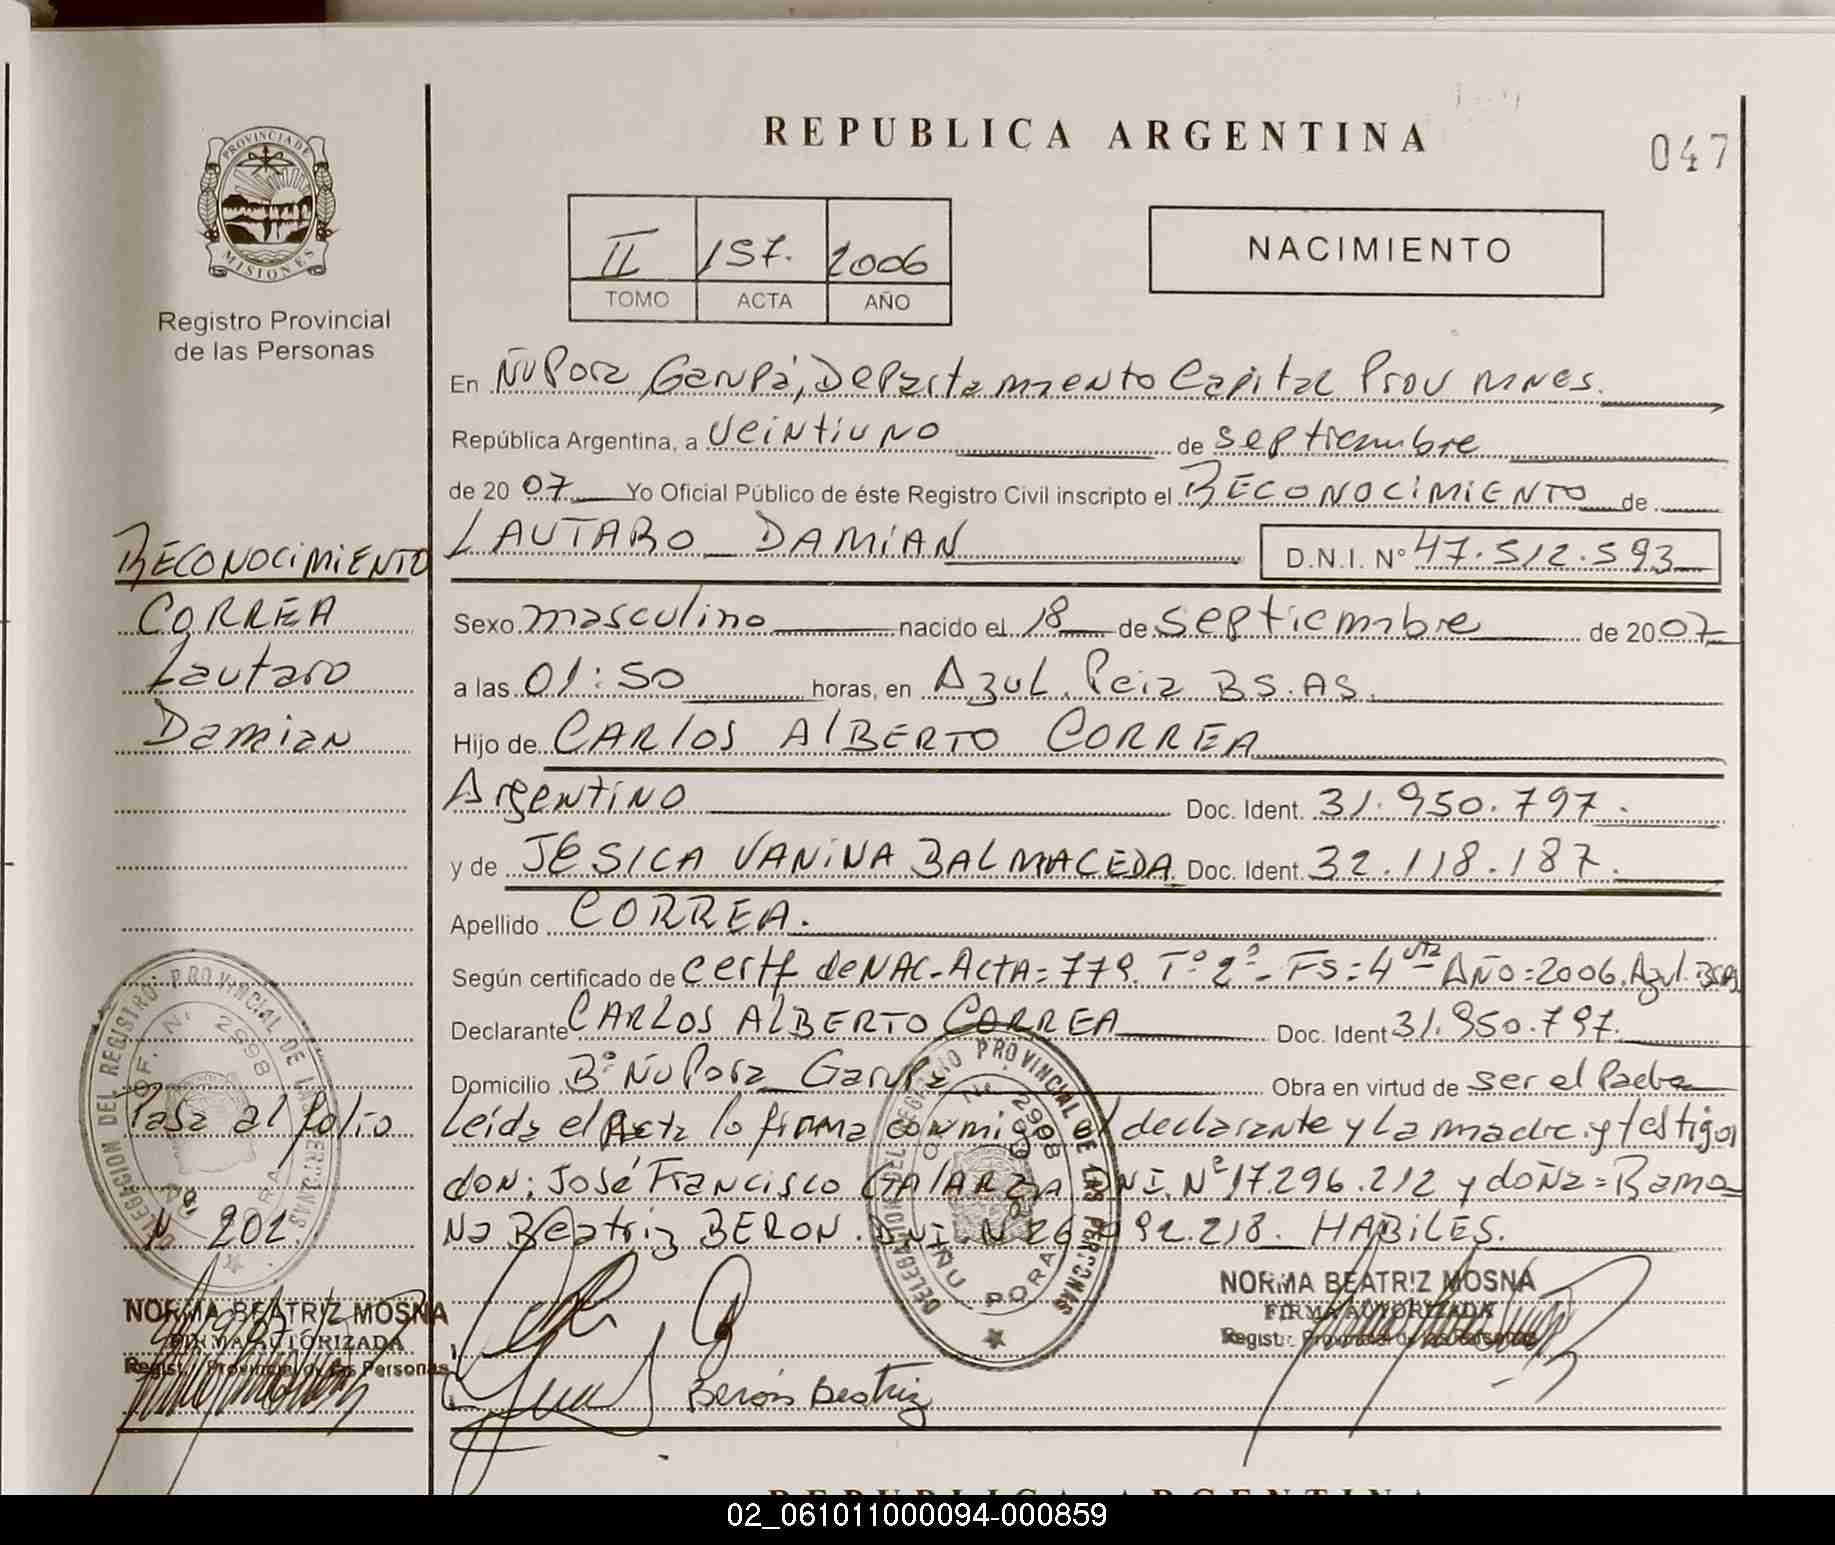 REPUBLICA ARGENTINA
047
PROVINCIA DE
MISIONES
Registro Provincial
de las Personas
II 157. 2006
TOMO ACTA AÑO
NACIMIENTO
En Ñu Pora Garupá, Departamento Capital Prov Mnes.
República Argentina, a veintiuno de septiembre
de 2007 Yo Oficial Público de éste Registro Civil inscripto el RECONOCIMIENTO de
LAUTARO DAMIAN D.N.I. N° 47.512.593
Sexo masculino nacido el 18 de septiembre de 2007
a las 01:50 horas, en Azul. Pcia BS.AS.
Hijo de CARLOS ALBERTO CORREA
Argentino Doc. Ident. 31.950.797.
y de JESICA VANINA BALMACEDA Doc. Ident. 32.118.187.
Apellido CORREA.
Según certificado de certf de NAC-ACTA=779. T° 2°- FS=4 vta AÑO=2006. Azul. BsAs
Declarante CARLOS ALBERTO CORREA Doc. Ident 31.950.797.
Domicilio B° Ñu Pora Garupa Obra en virtud de ser el Padre
Leída el Acta lo firma conmigo el declarante y la madre y testigos
don: José Francisco GALARZA DNI. N° 17.296.212 y doña = Ramo
na Beatriz BERON. DNI. N 26.092.218. HABILES.
RECONOCIMIENTO
CORREA
Lautaro
Damian
Pasa al folio
Nº 202.
DELEGACION DEL REGISTRO PROVINCIAL DE LAS PERSONAS
OF. Nº 2998
ÑU PORA
NORMA BEATRIZ MOSNA
FIRMA AUTORIZADA
Regist. Provincial de las Personas
DELEGACION DEL REGISTRO PROVINCIAL DE LAS PERSONAS
2998
ÑU PORA
NORMA BEATRIZ MOSNA
FIRMA AUTORIZADA
Regist. Provincial de las Personas
Berón Beatriz
REPUBLICA ARGENTINA
02_061011000094-000859